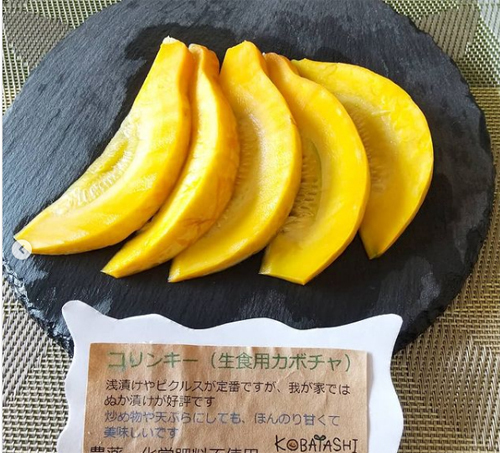 コリンキー（生食用カボチャ）
浅漬けやピクルスが定番ですが、我が家では
ぬか漬けが好評です
炒め物や天ぷらにしても、ほんのり甘くて
美味しいです
農薬、化学肥料不使用
KOBAYASHI